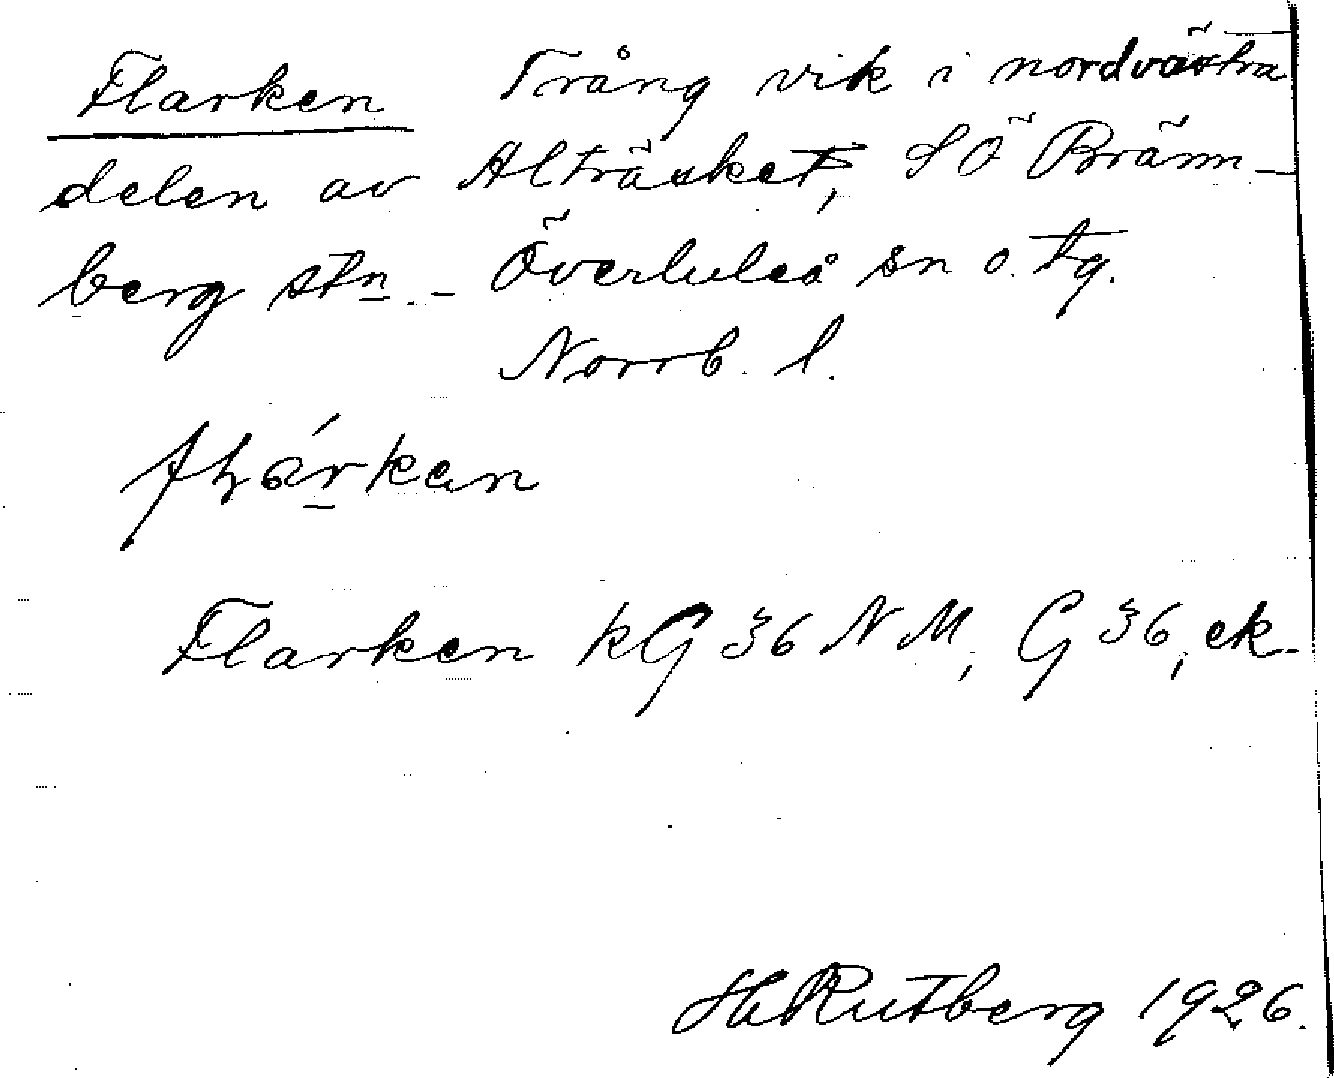 Flarken Trång vik i nordvästra
delen av Alträsket, SÖ Bränn-
berg stn. - Överluleå sn o. tg.
Norrb. l.
Flarken kG 36 NM, G 36, ek.
H Rutberg 1926.